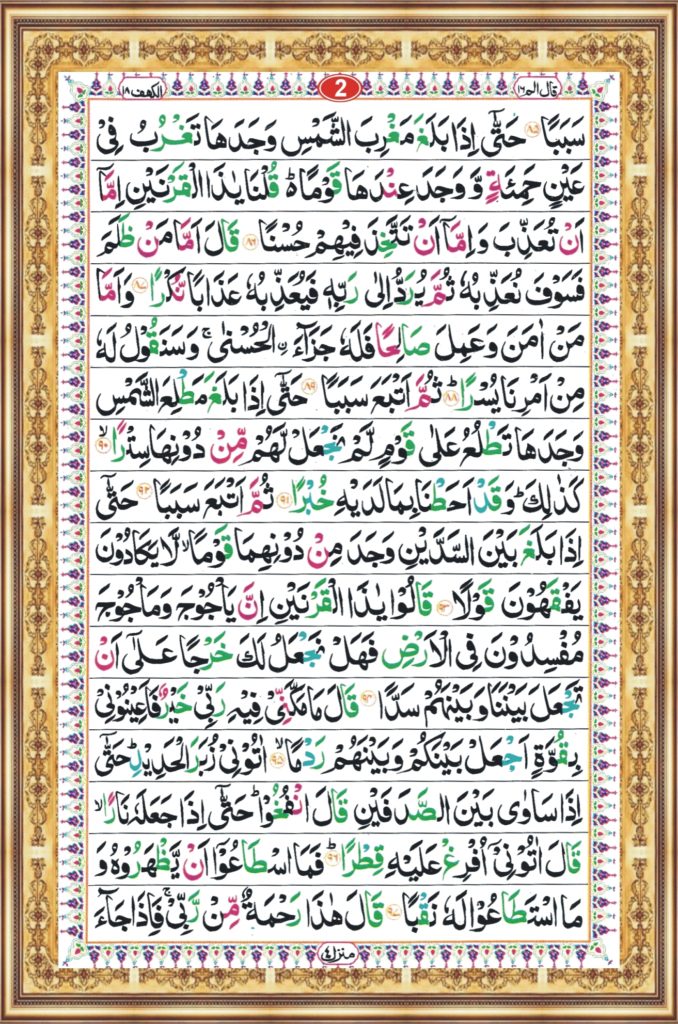 الكهف ١٨ 2 قال الم ١٦
سَبَبًا ۝٨٥ حَتّٰۤی اِذَا بَلَغَ مَغْرِبَ الشَّمْسِ وَجَدَهَا تَغْرُبُ فِیْ
عَیْنٍ حَمِئَةٍ وَّ وَجَدَ عِنْدَهَا قَوْمًا ؕ۬ قُلْنَا یٰذَا الْقَرْنَیْنِ اِمَّاۤ
اَنْ تُعَذِّبَ وَ اِمَّاۤ اَنْ تَتَّخِذَ فِیْهِمْ حُسْنًا ۝٨٦ قَالَ اَمَّا مَنْ ظَلَمَ
فَسَوْفَ نُعَذِّبُهٗ ثُمَّ یُرَدُّ اِلٰی رَبِّهٖ فَیُعَذِّبُهٗ عَذَابًا نُّكْرًا ۝٨٧ وَ اَمَّا
مَنْ اٰمَنَ وَ عَمِلَ صَالِحًا فَلَهٗ جَزَآءَ ۨ الْحُسْنٰی ۚ وَ سَنَقُوْلُ لَهٗ
مِنْ اَمْرِنَا یُسْرًا ؕ۝٨٨ ثُمَّ اَتْبَعَ سَبَبًا ۝٨٩ حَتّٰۤی اِذَا بَلَغَ مَطْلِعَ الشَّمْسِ
وَجَدَهَا تَطْلُعُ عَلٰی قَوْمٍ لَّمْ نَجْعَلْ لَّهُمْ مِّنْ دُوْنِهَا سِتْرًا ۙ۝٩٠
كَذٰلِكَ ؕ وَ قَدْ اَحَطْنَا بِمَا لَدَیْهِ خُبْرًا ۝٩١ ثُمَّ اَتْبَعَ سَبَبًا ۝٩٢ حَتّٰۤی
اِذَا بَلَغَ بَیْنَ السَّدَّیْنِ وَجَدَ مِنْ دُوْنِهِمَا قَوْمًا ۙ لَّا یَكَادُوْنَ
یَفْقَهُوْنَ قَوْلًا ۝٩٣ قَالُوْا یٰذَا الْقَرْنَیْنِ اِنَّ یَاْجُوْجَ وَ مَاْجُوْجَ
مُفْسِدُوْنَ فِی الْاَرْضِ فَهَلْ نَجْعَلُ لَكَ خَرْجًا عَلٰۤی اَنْ
تَجْعَلَ بَیْنَنَا وَ بَیْنَهُمْ سَدًّا ۝٩٤ قَالَ مَا مَكَّنِّیْ فِیْهِ رَبِّیْ خَیْرٌ فَاَعِیْنُوْنِیْ
بِقُوَّةٍ اَجْعَلْ بَیْنَكُمْ وَ بَیْنَهُمْ رَدْمًا ۙ۝٩٥ اٰتُوْنِیْ زُبَرَ الْحَدِیْدِ ؕ حَتّٰۤی
اِذَا سَاوٰی بَیْنَ الصَّدَفَیْنِ قَالَ انْفُخُوْا ؕ حَتّٰۤی اِذَا جَعَلَهٗ نَارًا ۙ
قَالَ اٰتُوْنِیْۤ اُفْرِغْ عَلَیْهِ قِطْرًا ؕ۝٩٦ فَمَا اسْطَاعُوْۤا اَنْ یَّظْهَرُوْهُ وَ
مَا اسْتَطَاعُوْا لَهٗ نَقْبًا ۝٩٧ قَالَ هٰذَا رَحْمَةٌ مِّنْ رَّبِّیْ ۚ فَاِذَا جَآءَ
منزل ٤